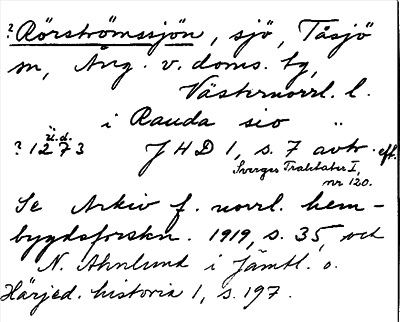 ? Rörströmssjön, sjö, Tåsjö
sn, Ång. v. doms. tg,
Västernorrl. l.
i Rauda sio
u.d.
? 1273 JHD 1, s. 7 avtr. eft.
Sverges Traktater I,
nr 120.
Se Arkiv f. norrl. hem-
bygdsforskn. 1919, s. 35, och
N. Ahnlund i Jämtl. o.
Härjed. historia 1, s. 197.